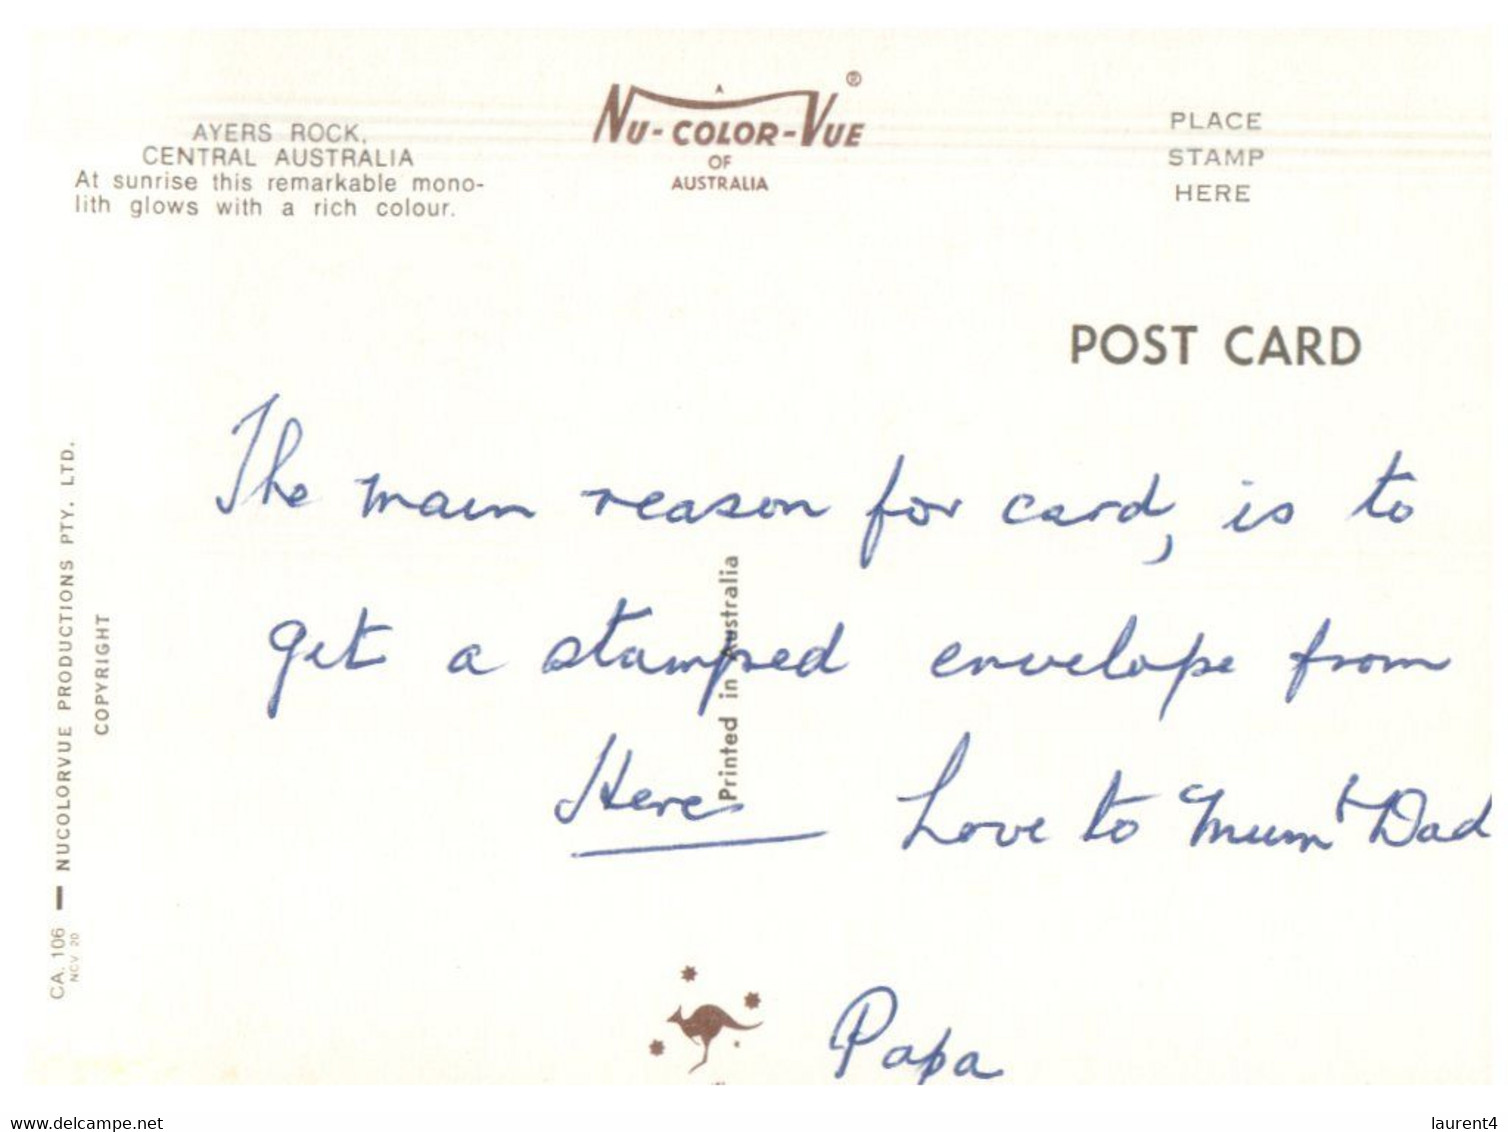 AYERS ROCK,
CENTRAL AUSTRALIA
At sunrise this remarkable mono-
lith glows with a rich colour.
A
NU-COLOR-VUE ®
OF
AUSTRALIA
PLACE
STAMP
HERE
POST CARD
The main reason for card, is to
get a stamped envelope from
Here Love to Mum & Dad
Papa
Printed in Australia
CA. 106 — NUCOLORVUE PRODUCTIONS PTY. LTD.
NCV 20
COPYRIGHT
www.delcampe.net
laurent4